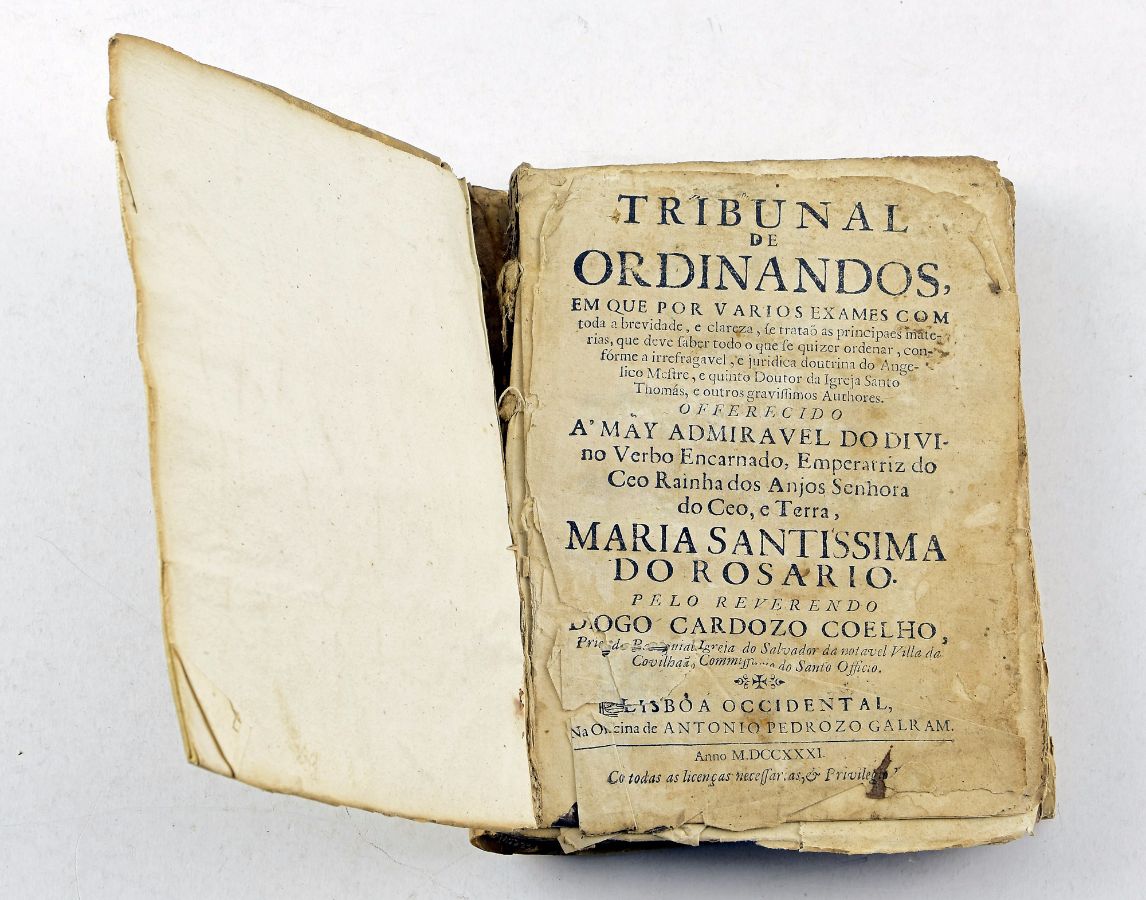 TRIBUNAL
DE
ORDINANDOS,
EM QUE POR VARIOS EXAMES COM
toda a brevidade, e clareza, ſe trataõ as principaes mate-
rias, que deve ſaber todo o que ſe quizer ordenar, con-
fórme a irrefragavel, e juridica doutrina do Ange-
lico Meſtre, e quinto Doutor da Igreja Santo
Thomás, e outros graviſſimos Authores.
OFFERECIDO
A' MÃY ADMIRAVEL DO DIVI-
no Verbo Encarnado, Emperatriz do
Ceo Rainha dos Anjos Senhora
do Ceo, e Terra,
MARIA SANTISSIMA
DO ROSARIO.
PELO REVERENDO
DIOGO CARDOZO COELHO,
Igreja do Salvador da notavel Villa da
Covilhaã, do Santo Officio.
LISBOA OCCIDENTAL,
Na Officina de ANTONIO PEDROZO GALRAM.
Anno M.DCCXXXI.
Cõ todas as licenças neceſſarias, & Privilegio